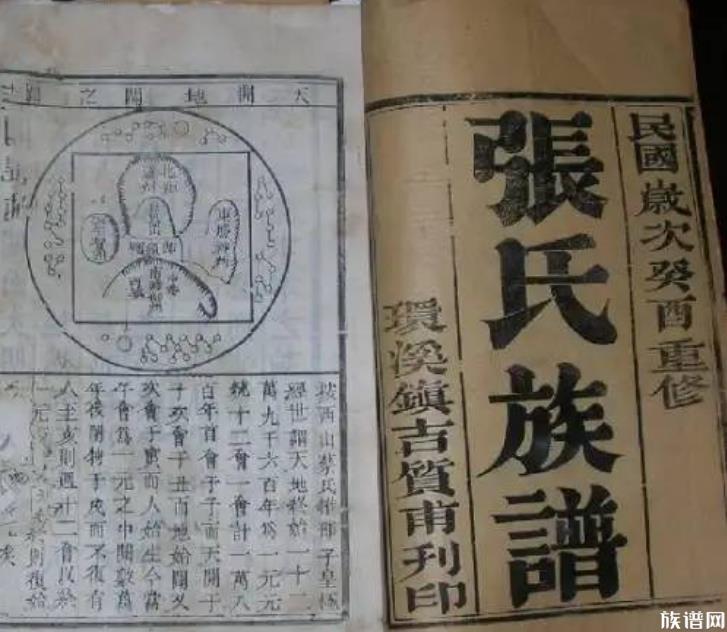 民國歲次癸酉重修
張氏族譜
環溪鎮吉質甫刊印
天開地闢之
東勝神州
按西山蔡氏推邵子皇極
經世謂天地終始一十二
萬九千六百年為一元元
統十二會一會計一萬八
百年首會于子而天開于
十次會于丑而地始闢又
次會于寅而人始生今當
午會為一元之中闢數萬
年後閉物于戌而不復有
人至亥則週十二會以終
一元終則復始
族谱网